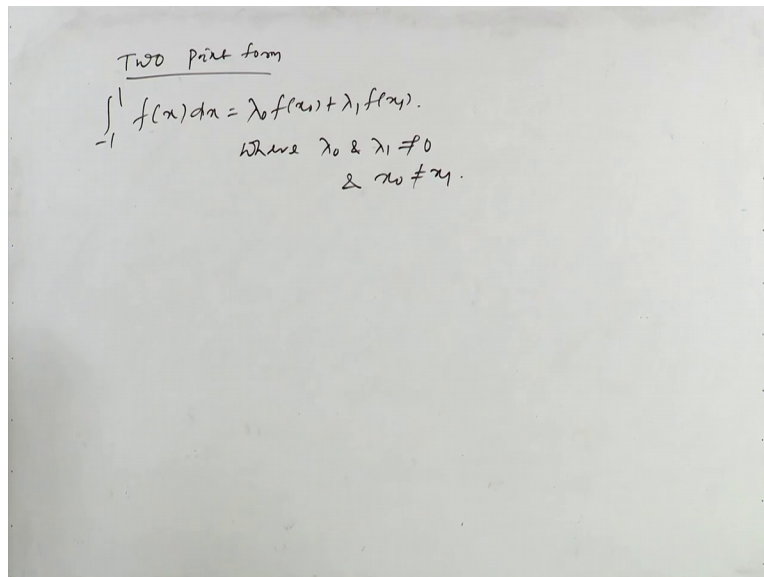 Two Point form
∫₋₁¹ f(x) dx = λ₀ f(x₀) + λ₁ f(x₁).
where λ₀ & λ₁ ≠ 0
& x₀ ≠ x₁.